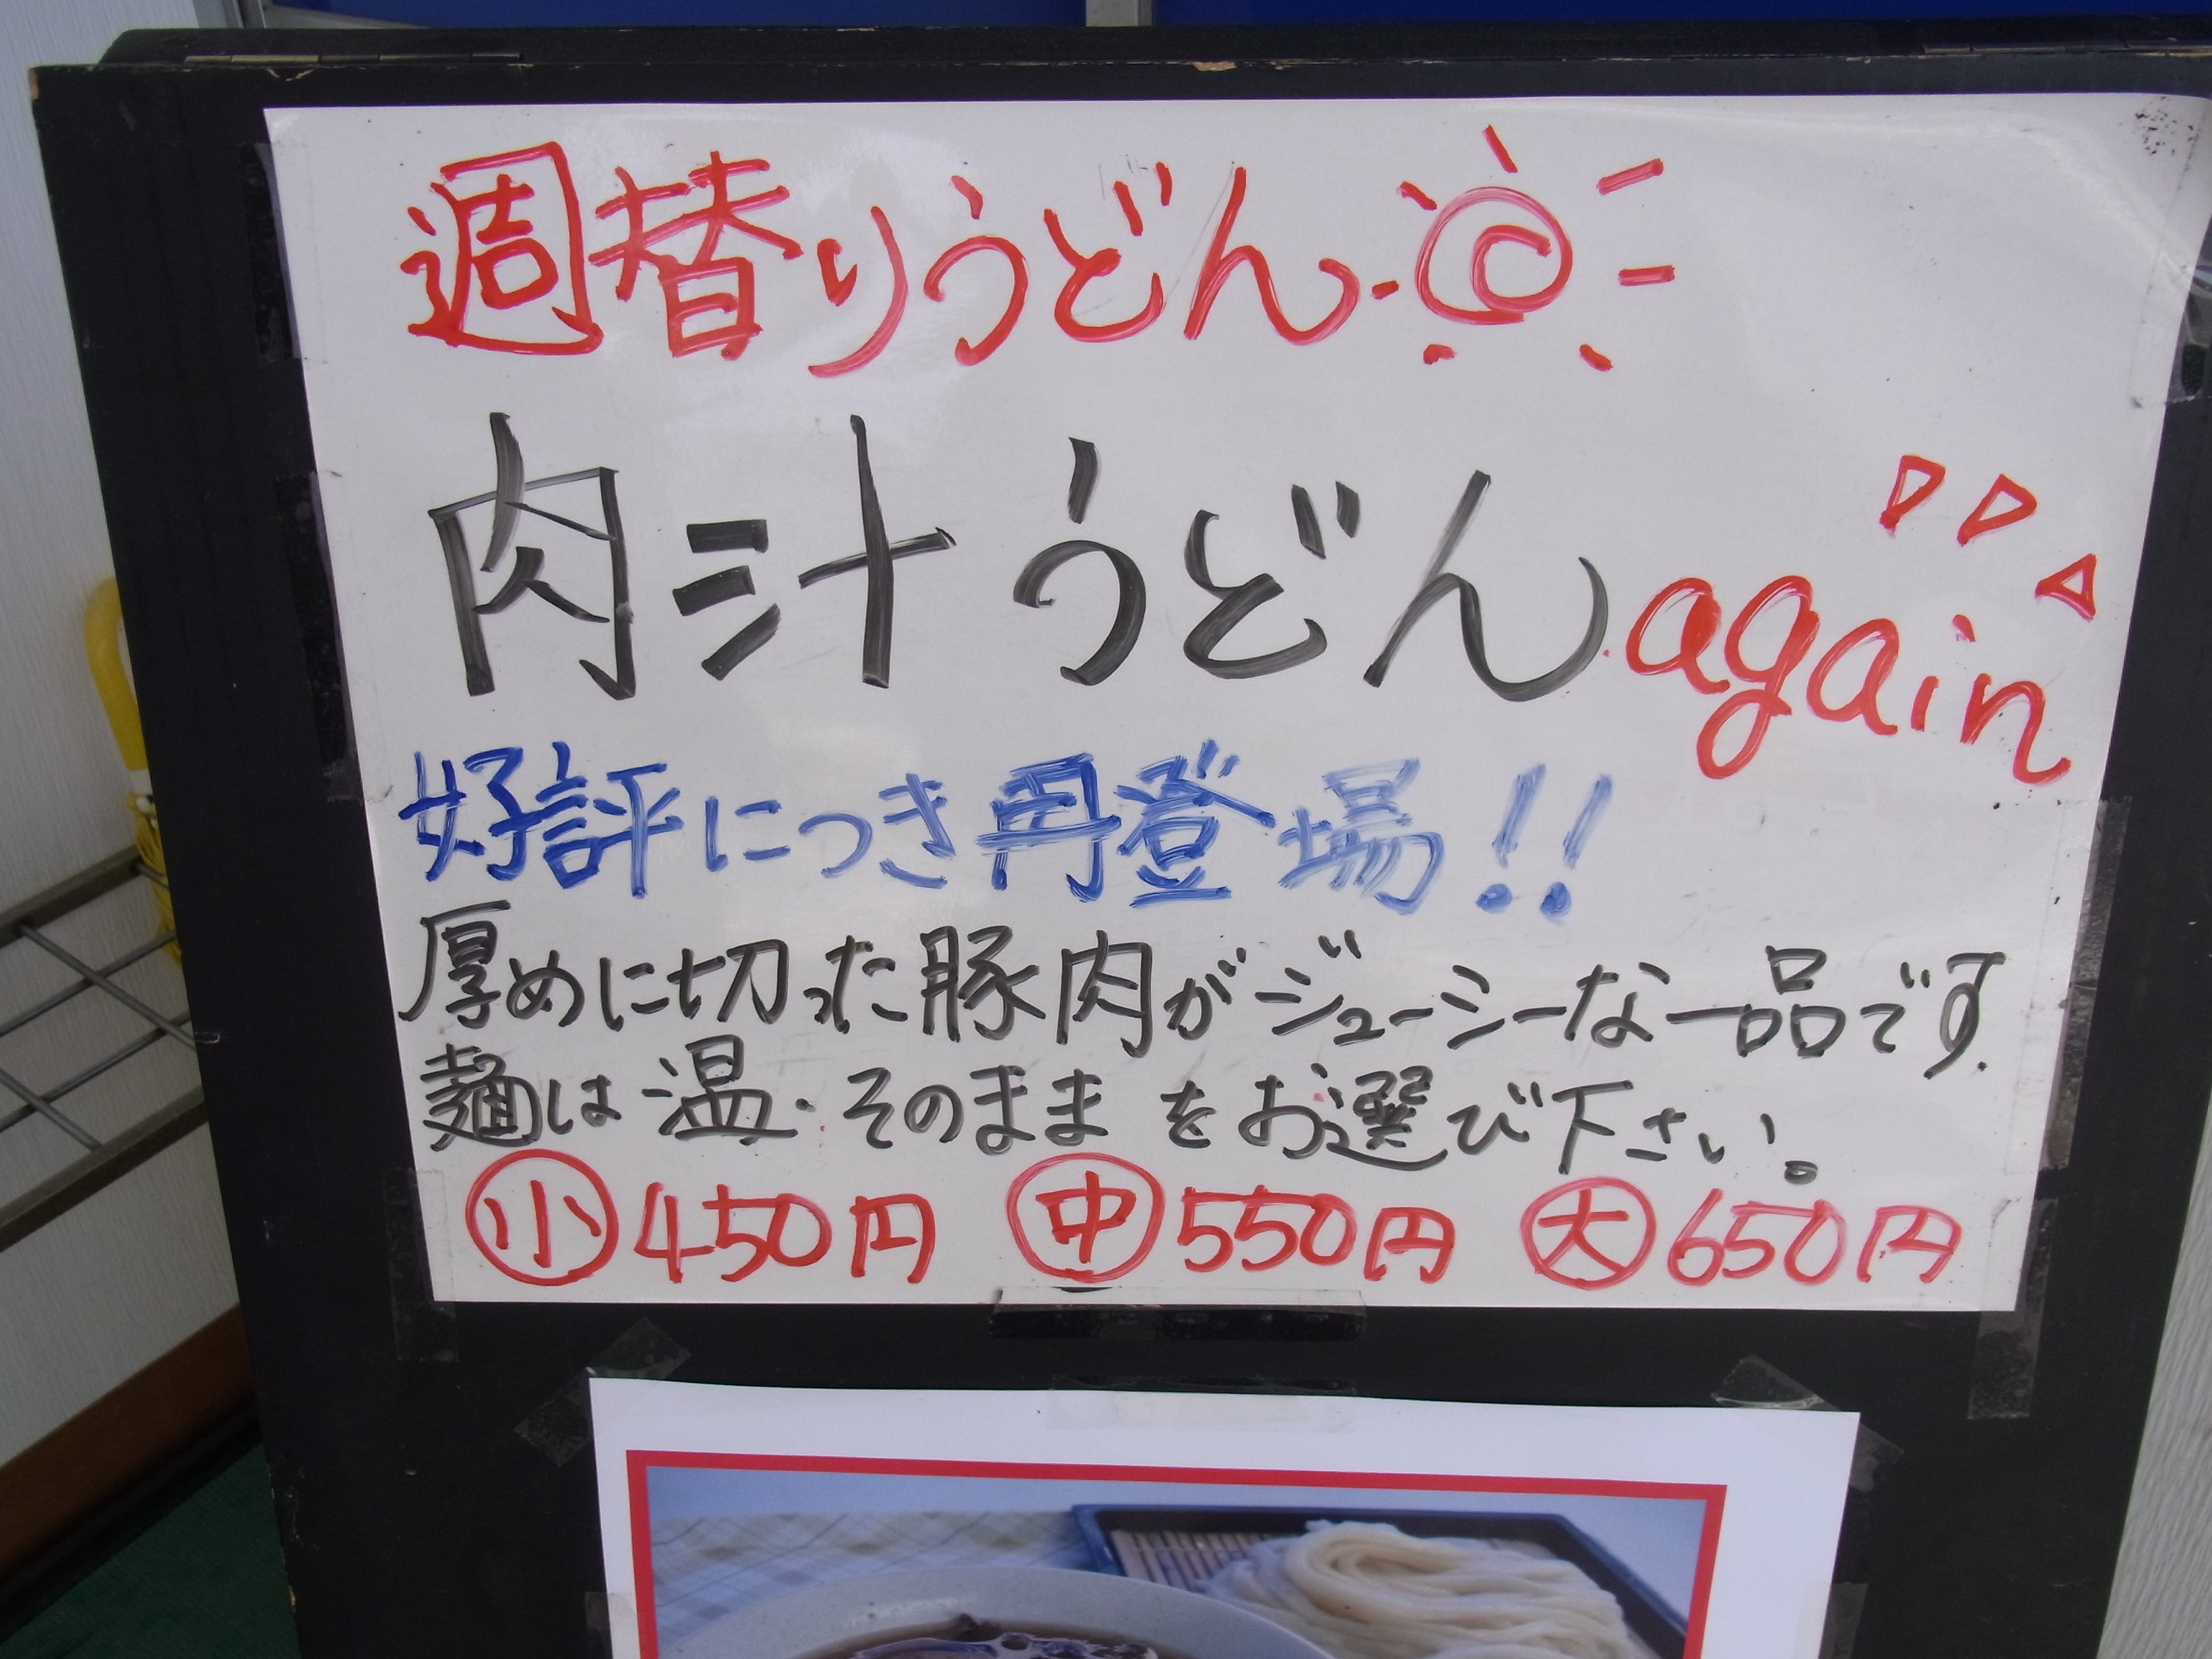 週替りうどん
肉汁うどん again
好評につき再登場!!
厚めに切った豚肉がジューシーな一品です.
麺は温・そのままをお選び下さい。
小 450円 中 550円 大 650円